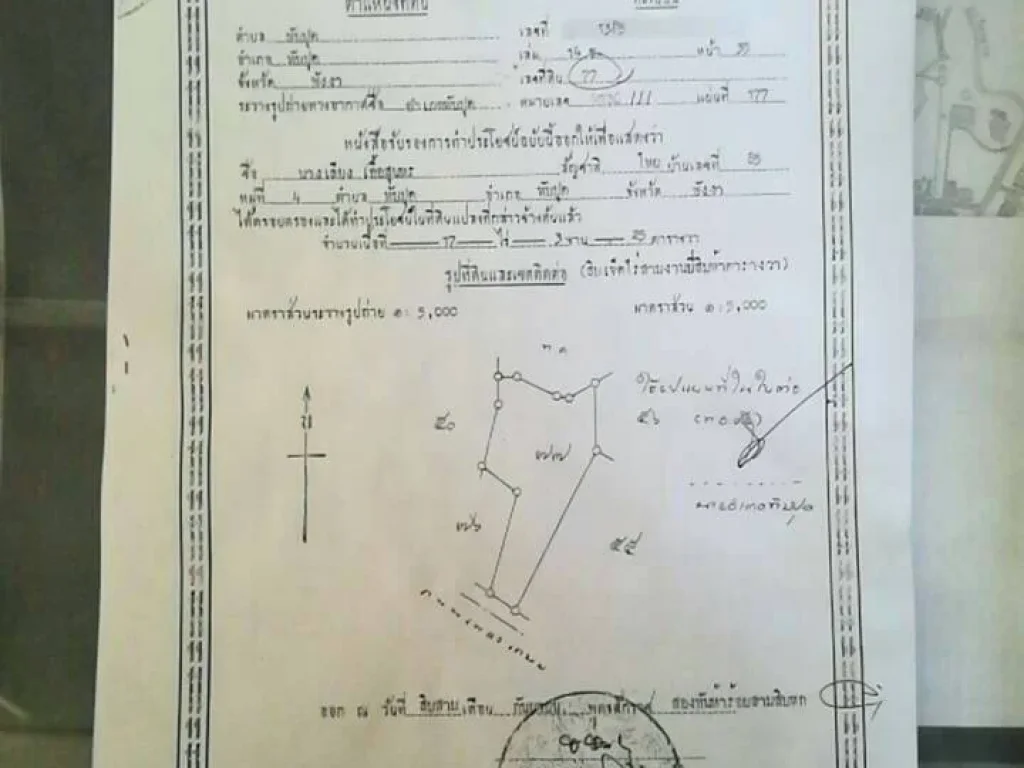 ตำแหน่งที่ดิน
ตำบล ทับปุด เลขที่
อำเภอ ทับปุด เล่ม 14 ข. หน้า 33
จังหวัด พังงา เลขที่ดิน 77
ระวางรูปถ่ายทางอากาศชื่อ อำเภอทับปุด หมายเลข III แผ่นที่ 177
หนังสือรับรองการทำประโยชน์ฉบับนี้ออกให้เพื่อแสดงว่า
ชื่อ นางเลียบ สัญชาติ ไทย บ้านเลขที่
หมู่ที่ 4 ตำบล ทับปุด อำเภอ ทับปุด จังหวัด พังงา
ได้ครอบครองและได้ทำประโยชน์ในที่ดินแปลงที่กล่าวข้างต้นแล้ว
จำนวนเนื้อที่ 17 ไร่ 3 งาน 25 ตารางวา
รูปที่ดินและเขตติดต่อ (สิบเจ็ดไร่สามงานยี่สิบห้าตารางวา)
มาตราส่วนระวางรูปถ่าย ๑: 5,000 มาตราส่วน ๑:5,000
ใช้รูปแผนที่ในใบต่อ
๕๐
น
๗๗
๕๖
๗๖
๕๕
นายอำเภอทับปุด
ออก ณ วันที่ สิบสาม เดือน กันยายน พุทธศักราช สองพันห้าร้อยสามสิบหก